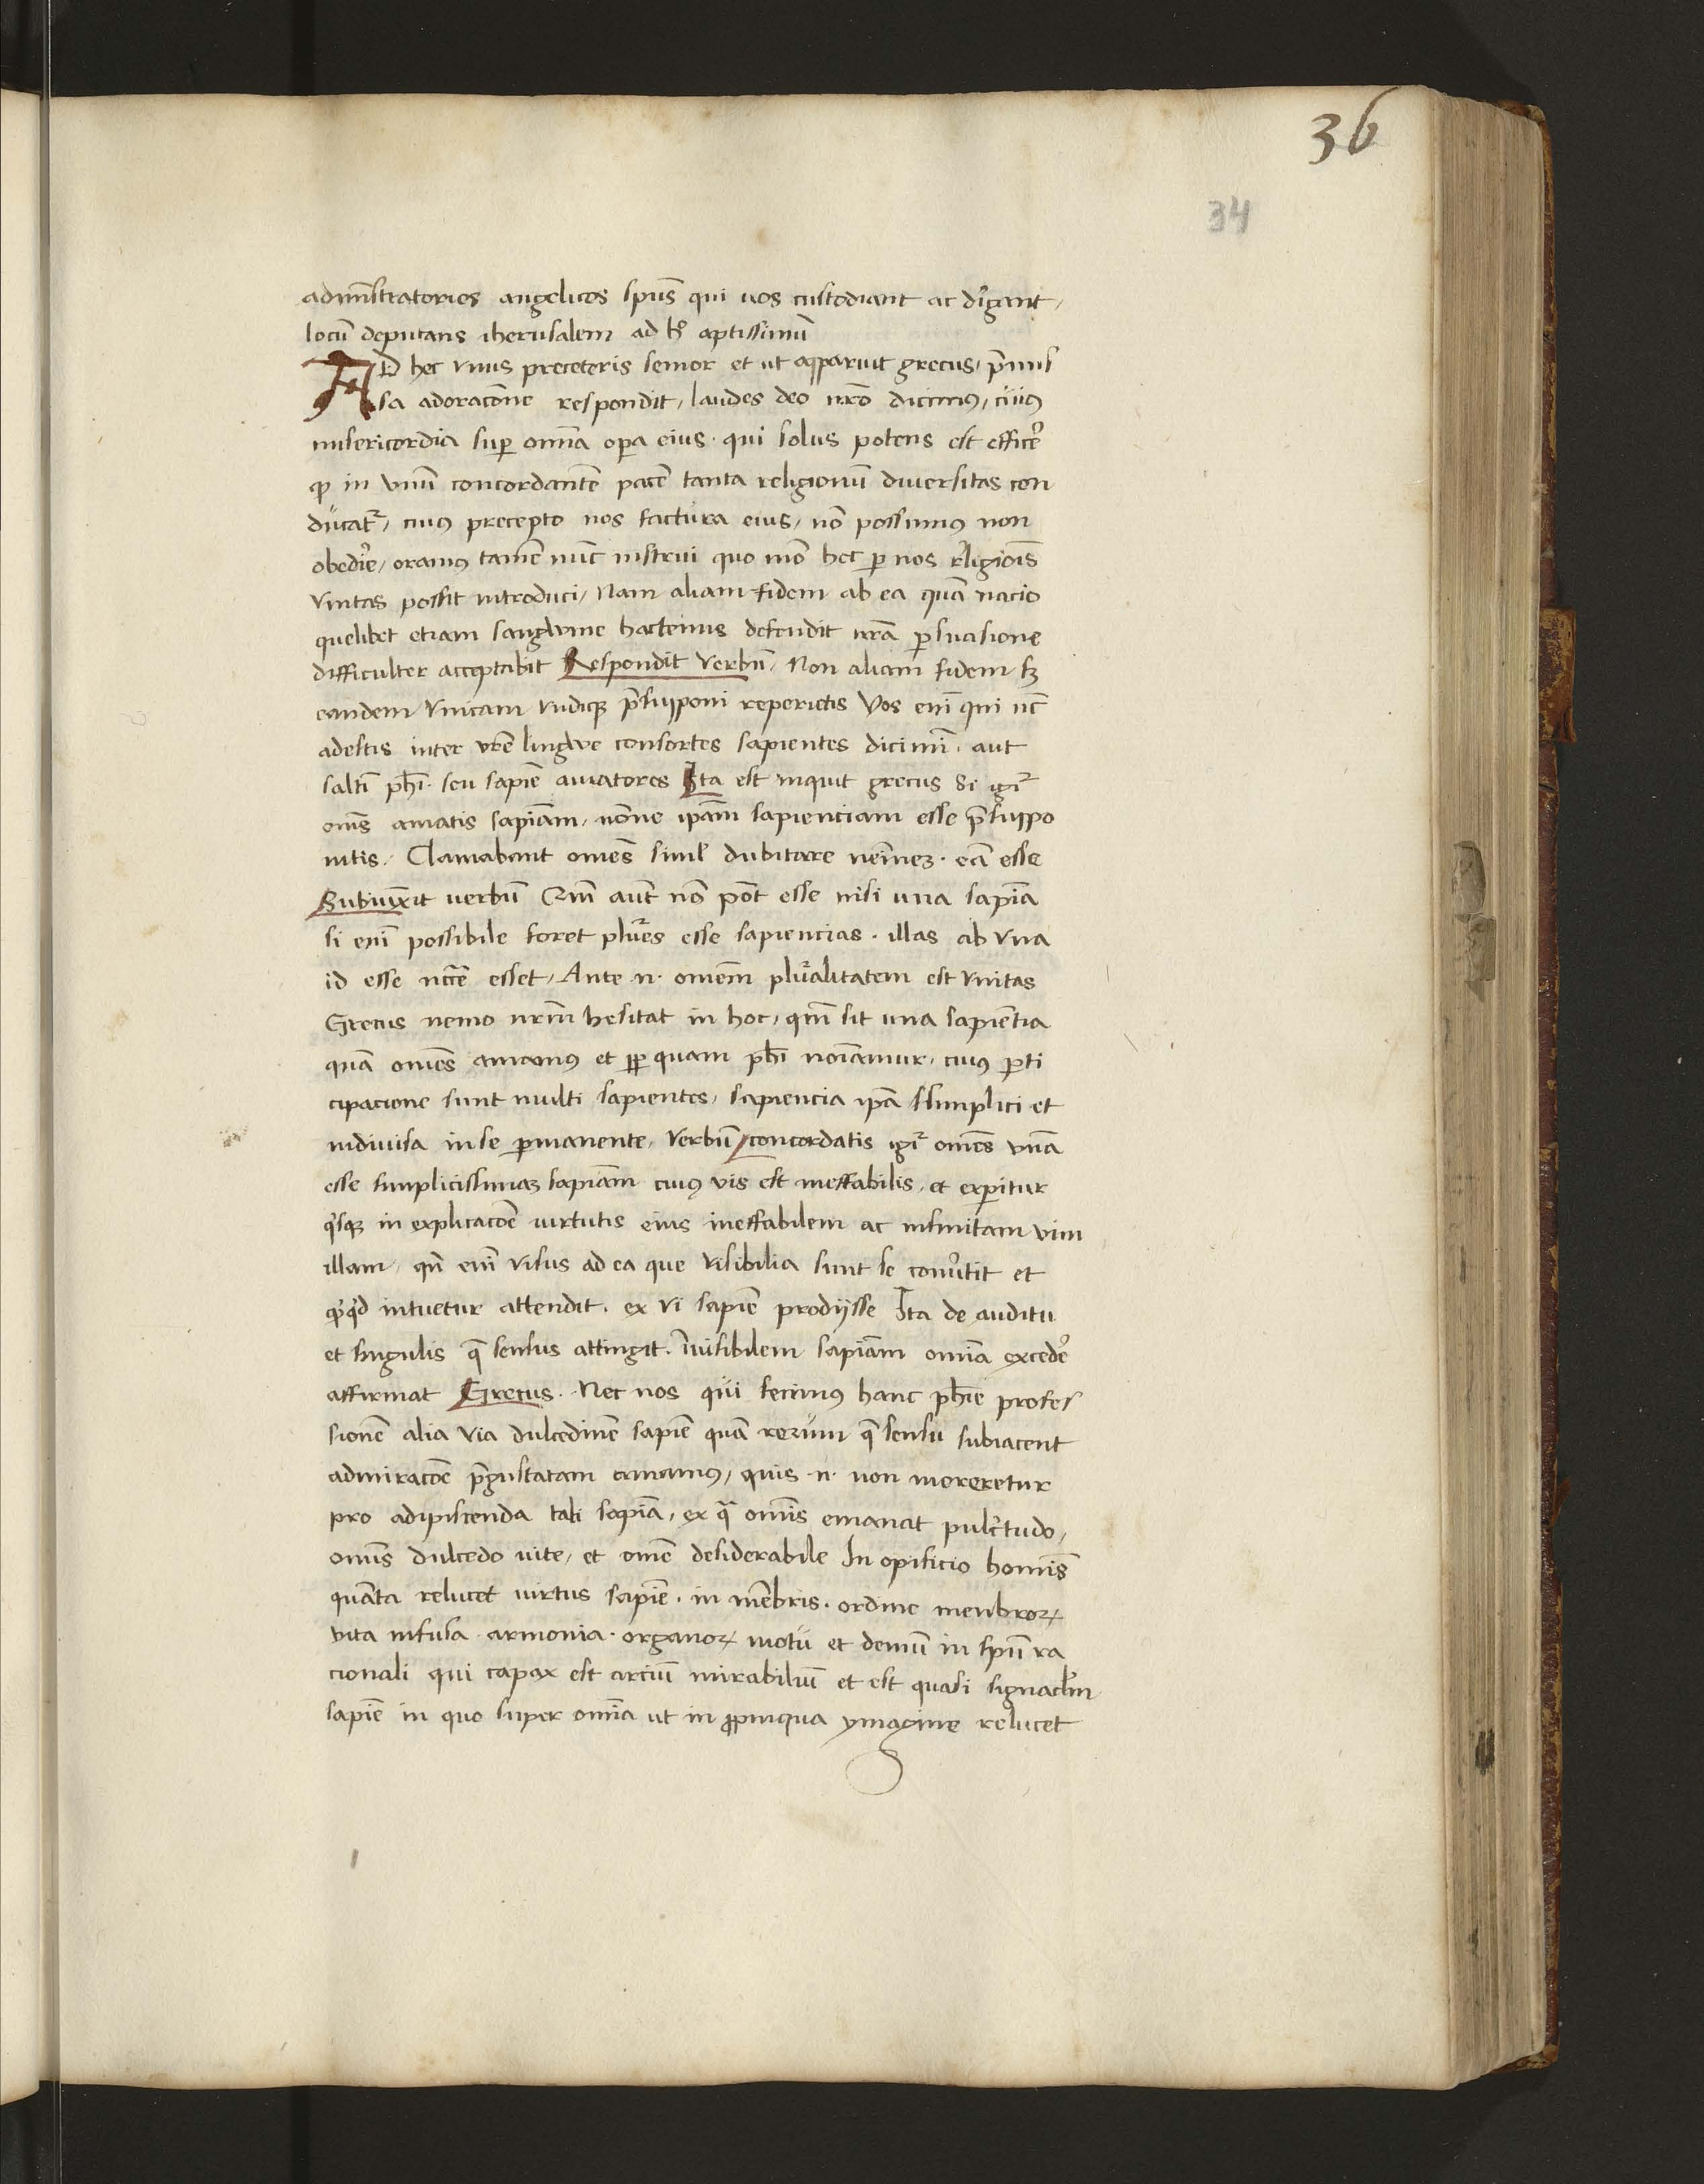 36
34
admīstratorios angelicos spūs qui uos custodiant ac dirigant,
locū deputans iherusalem ad h̊ aptissimū
AD hec vnus preceteris senior et ut apparuit grecus, p̄mis
sa adoracōne respondit, laudes deo nr̄o dicimus, cuius
misericordia sup omīa opa eius. qui solus potens est efficē
ꝙ in vnū concordantē pacē tanta religionū diuersitas con
ducatr, cuius precepto nos factura eius, nō possumus non
obedire, oramus tamē nūc instrui quo mō hec p nos religiōis
vnitas possit introduci, Nam aliam fidem ab ea quā nacio
quelibet etiam sangwine hactenus defendit nr̄a p̱suasione
difficulter acceptabit Respondit verbū, Non aliam fidem sꝫ
eandem vnicam vndiqꝫ p̄supponi reperietis Vos enī qui nc̄
adestis inter vr̄e lingwe consortes sapientes dicimī. aut
saltī phī. seu sapīe amatores Ita est inquit grecus Si igr̄
om̄s amatis sapīam, nōne ip̄am sapienciam esse p̄suppo
nitis, Clamabant om̄es simul dubitare nemīeꝫ. eā esse
Subiunxit verbū Qm̄ aut̄ nō pōt esse nisi una sapīa
si enī possibile foret plures esse sapiencias. illas ab vna
id esse nc̄ē esset, Ante .n. omēm pluralitatem est vnitas
Grecus nemo nr̄m hesitat in hoc, qm̄ sit una sapiētia
quā om̄es amamus et ꝓp quam phī noīamur. cuius parti
cipacione sunt multi sapientes, sapiencia ip̄a simplici et
indiuisa inse pmanente, Verbū concordatis igr̄ om̄es vnā
esse simplicissimaꝫ sapīam cuius vis est ineffabilis, et experitur
quisqꝫ in explicacōe uirtutis eius ineffabilem ac infinitam vim
illam, qn̄ enī visus ad ea que visibilia sunt se conuertit et
quicquid intuetur attendit. ex vi sapīe prodijsse Ita de auditu
et singulis q̄ sensus attingit. Inuisibilem sapīam omīa excedē
affirmat Grecus. Nec nos qui fecimus hanc phīe profes
sionē alia via dulcedinē sapīe quā rerum q̄ sensui subiacent
admiracōe p̄gustatam amamus, quis .n. non moreretur
pro adipiscenda tali sapīa, ex qua om̄is emanat pulcritudo,
om̄is dulcedo uite, et omē desiderabile In opificio homīs
quāta relucet uirtus sapīe. in mēbris. ordine menbroꝝ
vita infusa. armonia. organoꝝ motū et demū in spū ra
cionali qui capax est arciū mirabiliū et est quasi signaculm
sapīe in quo super omīa ut in ꝓpinqua ymagine relucet